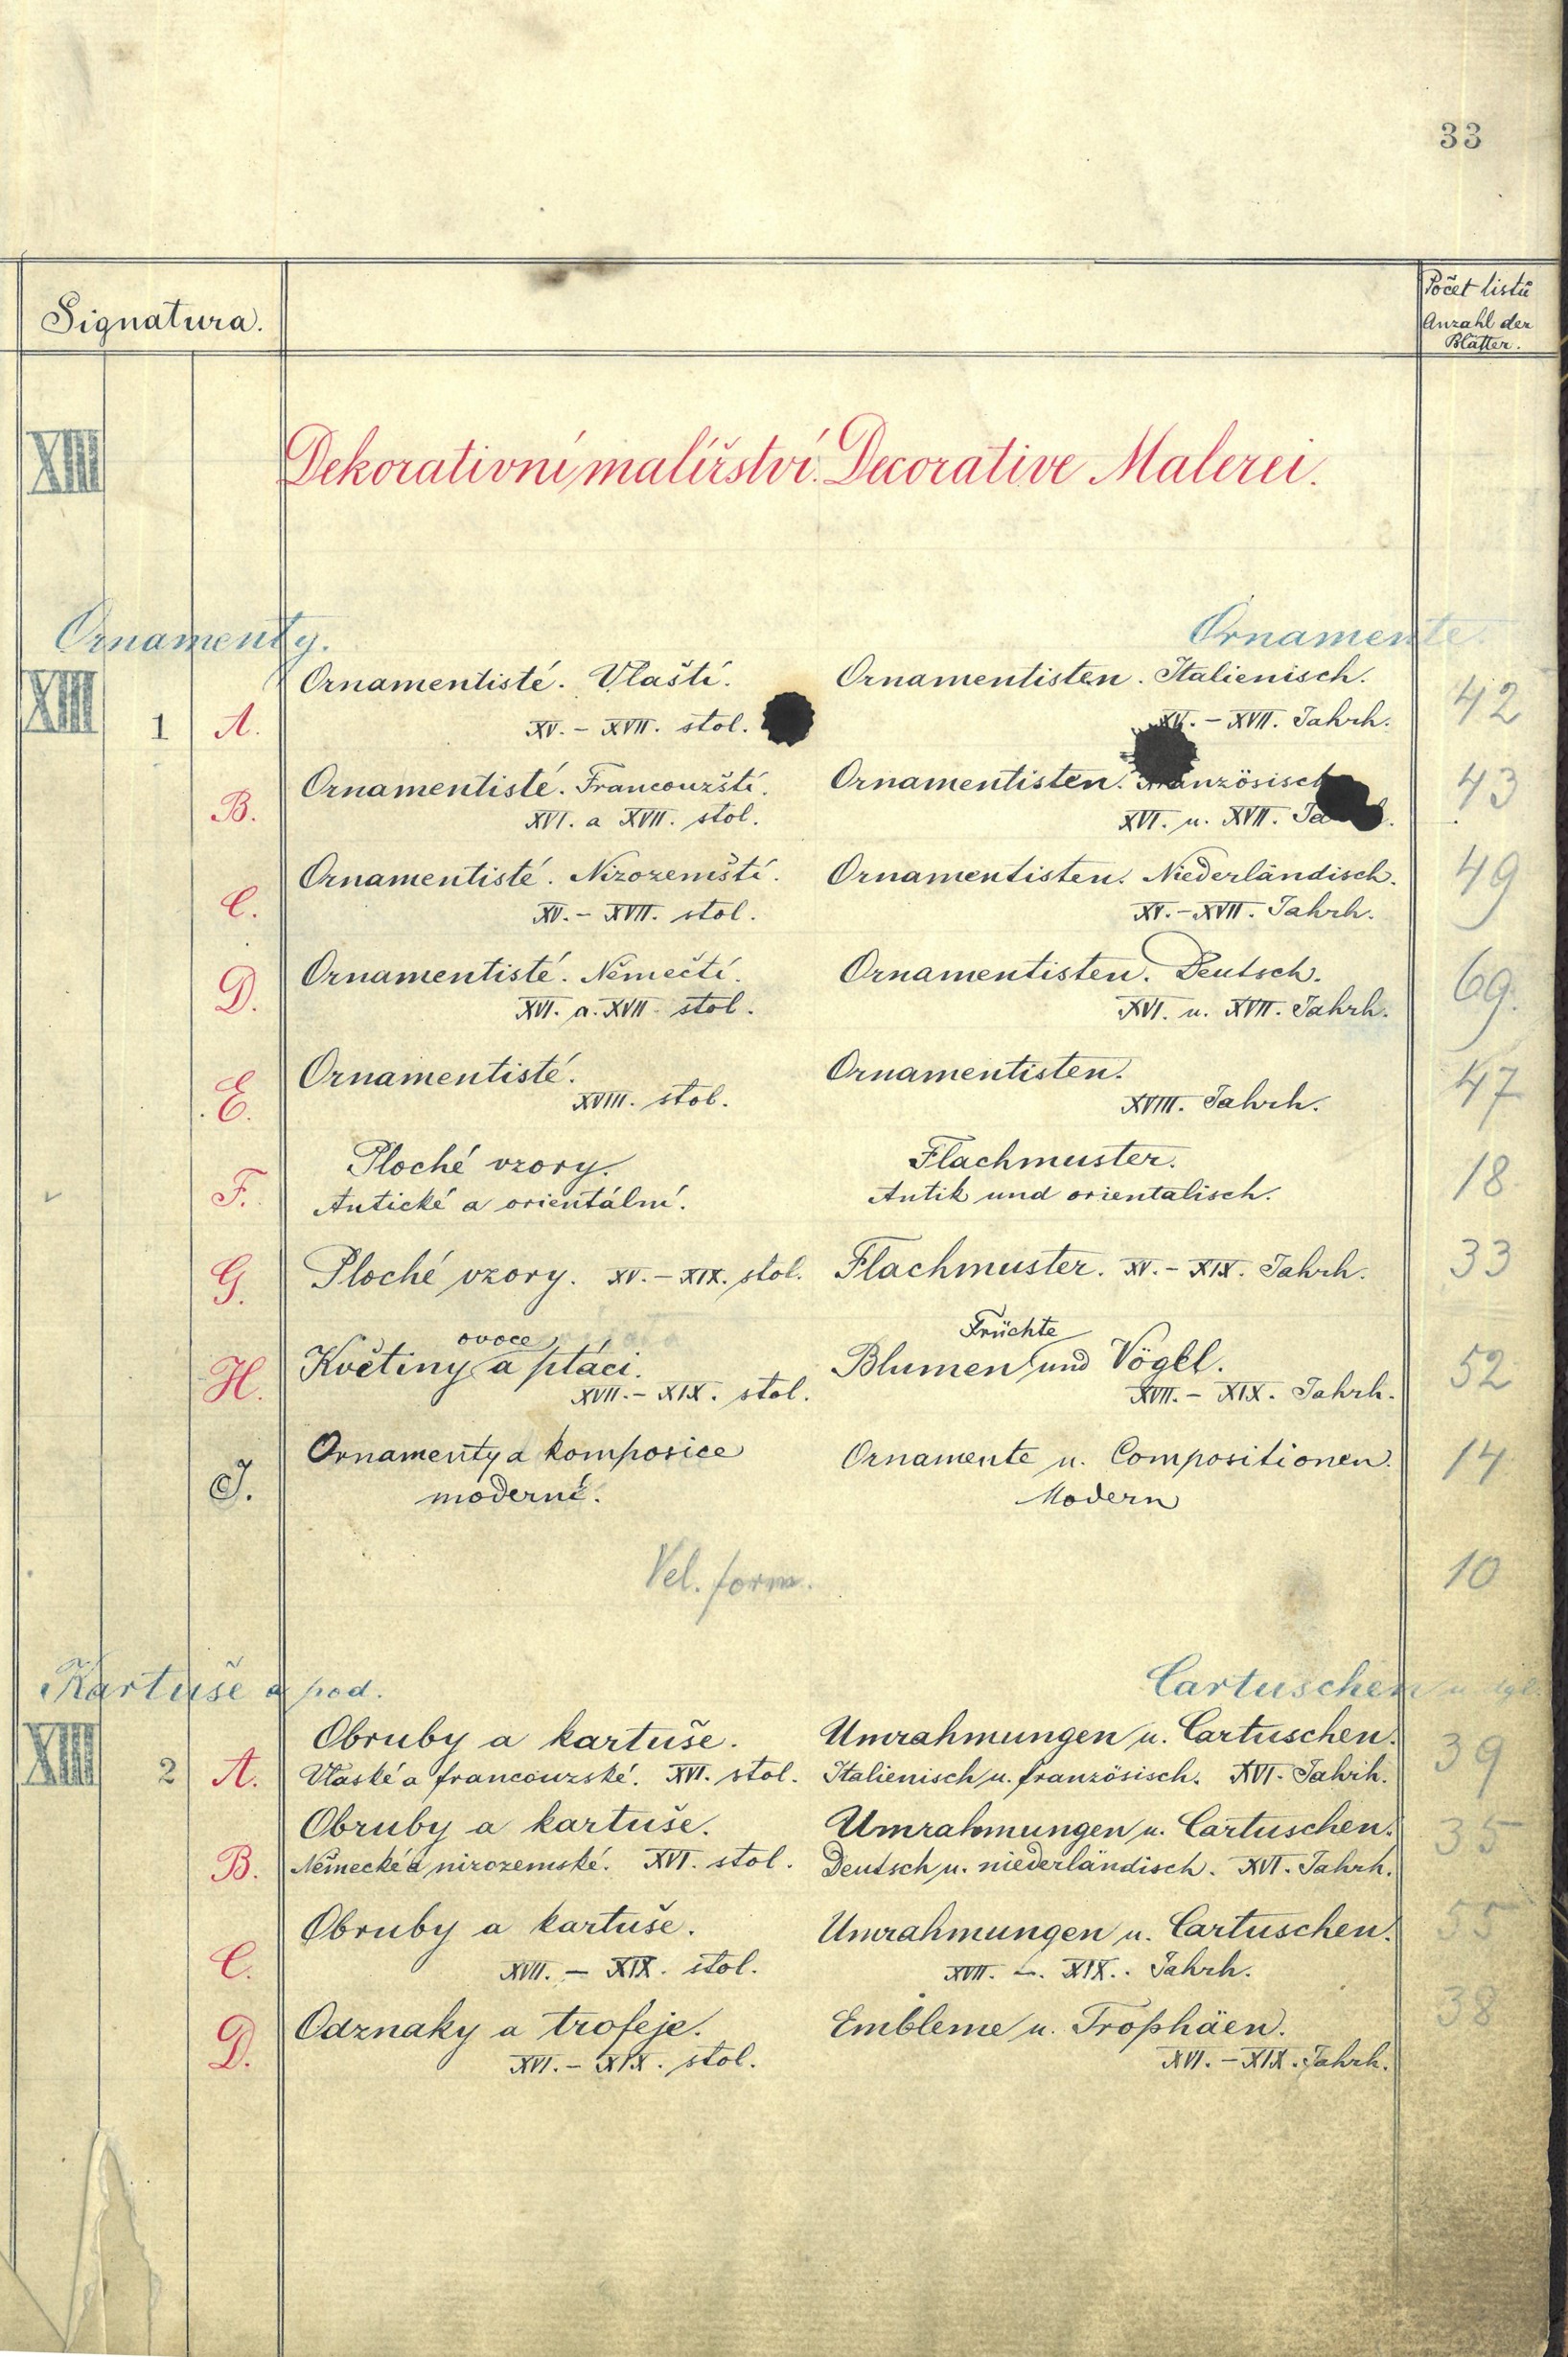 33
Signatura.
Počet listů
Anzahl der
Blätter.
XIII Dekorativní malířství. Decorative Malerei.
Ornamenty. Ornamente.
XIII 1 A. Ornamentisté. Vlaští. Ornamentisten. Italienisch. 42
XV. – XVII. stol. XV. – XVII. Jahrh.
B. Ornamentisté. Francouzští. Ornamentisten. Französisch 43
XVI. a XVII. stol. XVI. u. XVII.
C. Ornamentisté. Nizozemští. Ornamentisten. Niederländisch. 49
XV. – XVII. stol. XV. – XVII. Jahrh.
D. Ornamentisté. Němečtí. Ornamentisten. Deutsch. 69.
XVI. a. XVII stol. XVI. u. XVII. Jahrh.
E. Ornamentisté. Ornamentisten. 47
XVIII. stol. XVIII. Jahrh.
F. Ploché vzory. Flachmuster. 18
Antické a orientální. Antik und orientalisch.
G. Ploché vzory. XV. – XIX. stol. Flachmuster. XV. – XIX. Jahrh. 33
ovoce Früchte
H. Květiny a ptáci. Blumen und Vögel. 52
XVII. – XIX. stol. XVII. – XIX. Jahrh.
J. Ornamenty a komposice Ornamente u. Compositionen. 14
moderní. Modern
Vel. form. 10
Kartuše a pod. Cartuschen u. dgl.
XIII 2 A. Obruby a kartuše. Umrahmungen u. Cartuschen. 39
Vlaské a francouzské. XVI. stol. Italienisch u. französisch. XVI. Jahrh.
B. Obruby a kartuše. Umrahmungen u. Cartuschen. 35
Německé a nizozemské. XVI. stol. Deutsch u. niederländisch. XVI. Jahrh.
C. Obruby a kartuše. Umrahmungen u. Cartuschen. 55
XVII. – XIX. stol. XVII. – XIX. Jahrh.
D. Odznaky a trofeje. Embleme u. Trophäen. 38
XVI. – XIX. stol. XVI. – XIX. Jahrh.